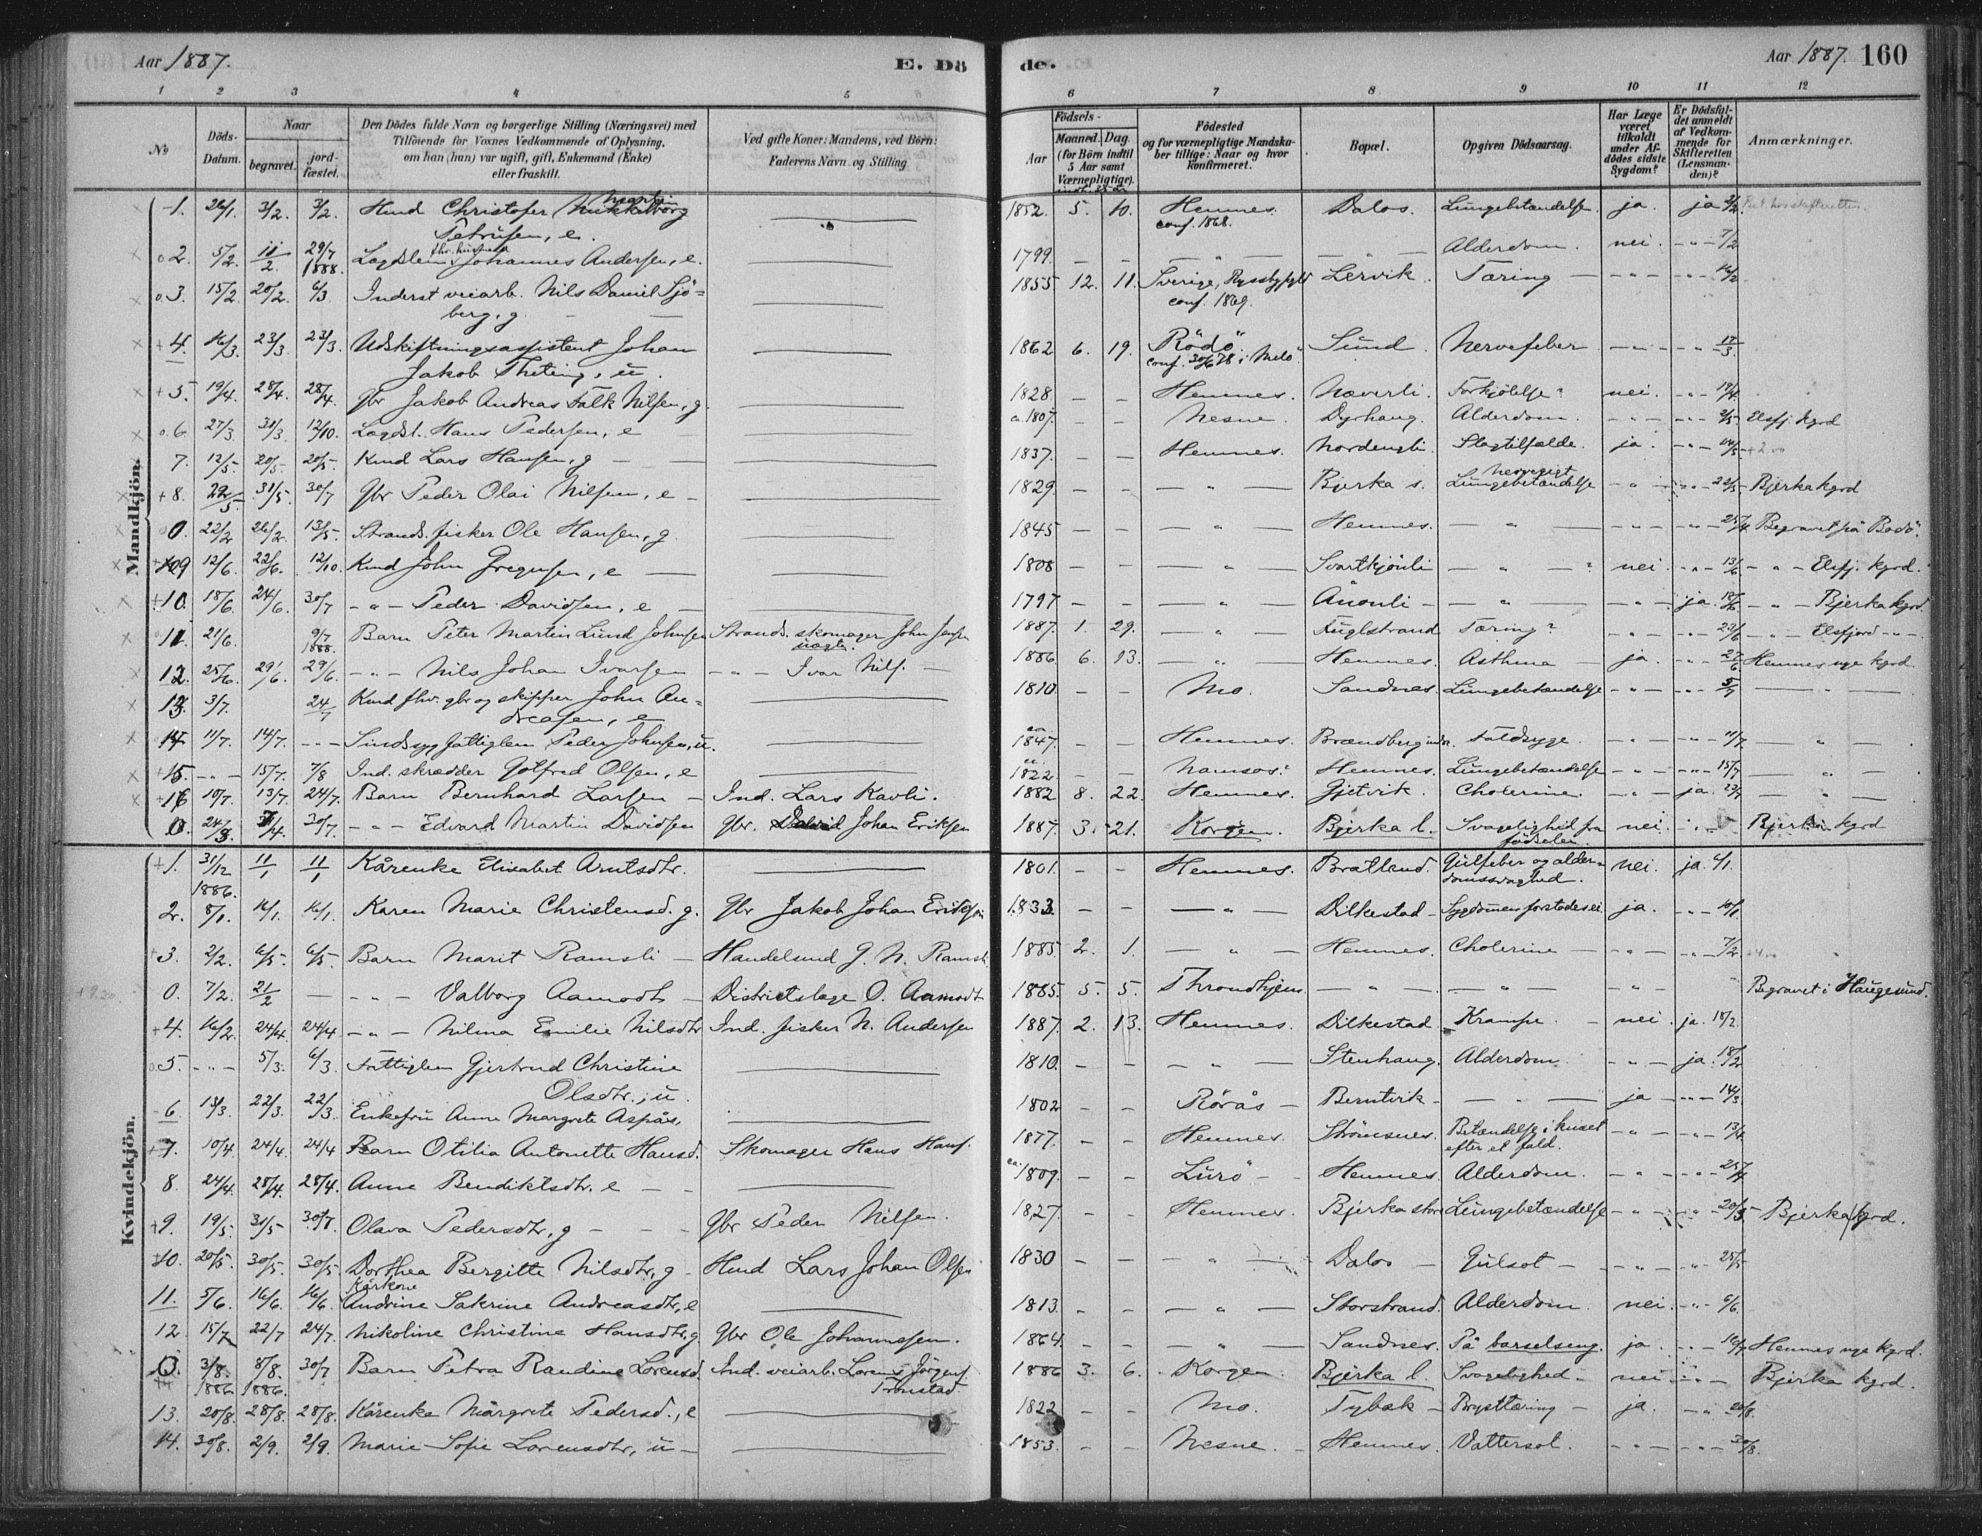 Aar 1887. E. Dö de. Aar 1887. 160
1 2 3 4 5 6 7 8 9 10 11 12
No
Döds-Datum.
Naar
begravet. jordfæstet.
Den Dödes fulde Navn og borgerlige Stilling (Næringsvei) med
Tilföiende for Voxnes Vedkommende af Oplysning,
om han (hun) var ugift, gift, Enkemand (Enke)
eller fraskilt.
Ved gifte Koner: Mandens, ved Börn:
Faderens Navn og Stilling
Födsels-
Aar
Maaned. Dag.
(for Börn indtil
5 Aar samt
Værnepligtige).
Födested
og for værnepligtige Mandskaber tillige: Naar og hvor
konfirmeret.
Bopæl.
Opgiven Dödsaarsag.
Har Læge
været
tilkaldt
under Afdödes sidste
Sygdom?
Er Dödsfaldet anmeldt
af Vedkommende for
Skifteretten
(Lensmanden)?
Anmærkninger.
Mandkjön.
1. 26/1. 3/2. 3/2. Hmd Christofer 1852. 5. 10. Hemnes. Dalos. Lungebetændelse ja. ja
Petrusen, e. conf. 1868.
2. 5/2. 11/2 29/7 1888. Lægdslem Johannes Andersen, e. 1799. — — — " — — Alderdom. nei. - " - 7/2
3. 15/2. 20/2. 6/3. Inderst veiarb. Nils Daniel Sjö= 1855 12. 11. Sverige, Lervik. Tæring — - " - 16/2
berg, g. conf. 1869.
4. 16/3. 23/3 23/3. Udskiftningsassistent Johan 1862 6. 19. Rödö. Sund. Nervefeber - " - - " - 17/3.
Jakob Theting, u. conf. 30/6 78 i Melö
5. 19/4. 28/4. 28/4. Gbr Jakob Andreas Falk Nilsen, g. 1828. — — Hemnes. Næverli. Forkjölelse? nei. - " - 19/4.
6 27/3. 31/3. 12/10. Lægdsl. Hans Pedersen, e — a. 1807. — — Nesne. Dyrhaug. Alderdom. - " - - " - Elsfj. kgrd
7. 12/5. 20/5. 20/5. Kmd Lars Hansen, g — 1837. — — Hemnes. Nordengli. Slagtilfælde. ja. - " -
8. 22/5 31/5. 30/7 Gbr Peder Olai Nilsen, e — 1829. — — — " — Bjerka s. Lungebetændelse - " - - " - 22/5 Bjerka kgrd
0. 22/2 26/2. 13/5. Strands. fisker Ole Hansen, g. 1845 — — — " — Hemnes. — " — - " - Begravet på Bodö.
9 12/6. 22/6. 12/10. Kmd John Gregusen, e — 1808 — — — " — Svartkjönli — " — ? nei. - " - 13/6 - " - Elsfj. kgrd.
10. 18/6 24/6. 30/7 - " - Peder Davidsen, e — 1797 — — — " — Ånonli — — " — - " - ja. 18/6 - " - Bjerka kgrd
11. 21/6. 9/7 1888. Barn Peter Martin Lund Johnsen Strands. skomager John Jensen 1887. 1. 29. — " — Fuglstrand Tæring? - " - - " - 23/6 - " - Elsfjord - " -
uægte.
12. 25/6. 29/6. 29/6. - " - Nils Johan Ivarsen - " - Ivar Nils. — 1886 6. 13. — " — Hemnes. Asthma — ja. - " - 27/6 Hemnes nye kgrd.
13. 3/7. 24/7 Kmd fhv. gbr og skipper John An= 1810. — — Mo. Sandnes. Lungebetændelse - " - - " - 5/7 — " —
dreasen, e
14 11/7. 14/7. - " - Sindssyg fattiglem Peder Johnsen, u. 1847. — — Hemnes. Brændberg Faldsyge. - " - - " - 11/7. — " —
15. - " - 15/7. 7/8 Ind. skrædder Gotfred Olsen, e 1822. — — Namsos. Hemnes. Lungebetændelse - " - - " - 15/7 — " —
16 10/7. 13/7. 24/7. Barn Bernhard Larsen — Ind. Lars Kavli. 1882 8. 22. Hemnes. Gjetvik. Cholerine. - " - ja. — " —
0. 24/3. 30/7. - " - Edvard Martin Davidsen Gbr. Johan Eriksen 1887. 3. 21. Korgen. Bjerka l. Svagelighed fra nei. - " - Bjerka kgrd
födselen.
Kvindekjön.
1. 31/12 1886. 11/1 11/1 Kårenke Elisabet Arntsdtr. 1801. — — Hemnes. Bratland. Gulfeber og alder= nei. ja. 6/1.
domssvaghed.
2. 8/1. 16/1. 16/1. Karen Marie Christensd. g. Gbr Jakob Johan Eriksen 1833. — — — " — Dilkestad — ja. - " - 10/1
3. 2/2. 6/5. 6/5. Barn Marit Ramsli — Handelsmd G. N. Ramsli 1885 2. 1. — " — Hemnes. Cholerine — - " - 7/2
0. 7/2. 21/2 — - " - Valborg Aamodt — Districtslæge O. Aamodt 1885. 5. 5. Throndhjem — " — — " — Begravet i Haugesund.
4. 16/2. 24/4 24/4. - " - Nilma Emilie Nilsdtr Ind. fisker N. Andersen 1887. 2. 13. Hemnes. Dilkestad Krampe. — nei. ja. 18/2.
5. - " - 5/3. 6/3. Fattiglem Gjertrud Christine 1810. — " — Stenhaug. Alderdom. - " - ja. 18/2
Olsdtr, u.
6. 13/3. 22/3. 22/3. Enkefru Anne Margrete Aspås, 1802 — — Rörås — Berntvik — — " — ja — - " - 14/3
7. 10/4. 24/4. 24/4 Barn Otilia Antonette Hansd. Skomager Hans Hans. 1877. — — Hemnes. Strömsnes. Betændelse i knæet - " - - " - 13/4
efter et fald.
8 24/4. 28/4. 28/4. Anne Bendiktsdtr. e — — 1809. — — Lurö — Hemnes. Alderdom. - " - - " - 25/4
9. 19/5. 31/5. 30/7. Olava Pedersdtr, g — — Gbr Peder Nilsen. 1827. — — Hemnes. Bjerka store Lungebetændelse - " - - " - 20/5 Bjerka kgrd.
10. 20/5. 30/5. 30/5. Dorthea Bergitte Nilsdtr, g — Hmd Lars Johan Olsen 1830 — — — " — Dalos — Gulsot — - " - - " - 25/5
11. 5/6. 16/6. 16/6. Andrine Sakrine Andreasdtr, e 1813. — — — " — Storstrand. Alderdom. nei. - " - 6/6.
12. 15/7 22/7 24/7. Nikoline Christine Hansdtr, g Gbr Ole Johannesen. 1864. — — — " — Sandnes. På barselseng. ja. - " - Hemnes nye kgrd.
0. 3/8. 1886 8/8. 1886. 30/7 Barn Petra Randine Lorensd. Ind. veiarb. Lorens Jörgens. 1886 3. 6. Korgen. Bjerka l. Svagelighed — nei - " - Bjerka kgrd.
Trönstad
13. 20/8. 28/8. 28/8. Kårenke Margrete Pedersd., e 1822 — — Mo. Tybæk — Brysttæring — ja. - " - 20/8.
14. 30/8. 2/9. 2/9. Marie Sofie Lorensdtr, u — 1853. — — Nesne. — Hemnes. Vattersot. - " - - " - 30/8.